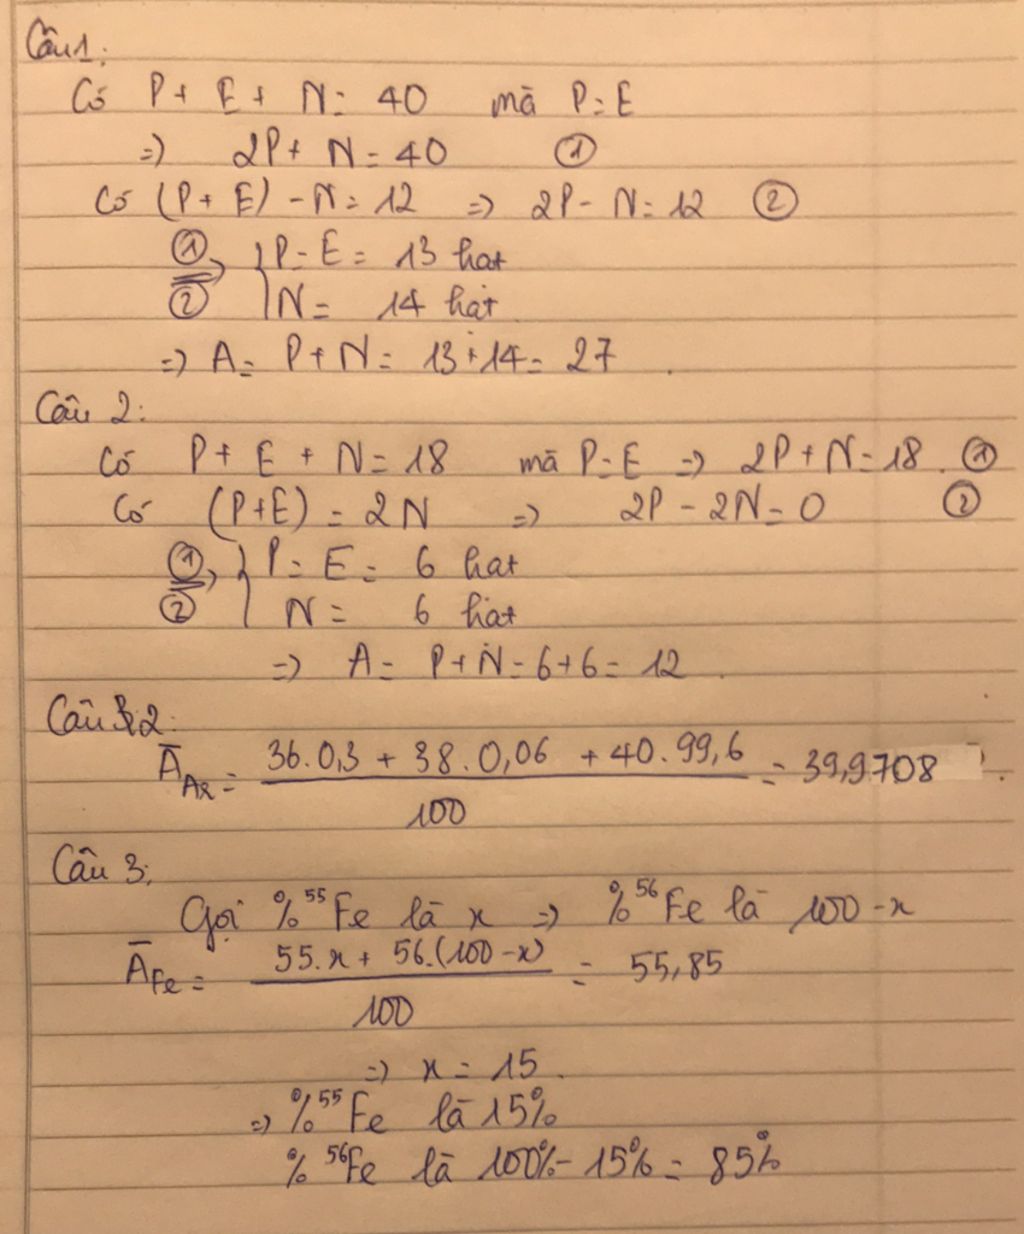 Câu 1:
Có P + E + N = 40 mà P = E
=> 2P + N = 40 ①
Có (P + E) - N = 12 => 2P - N = 12 ②
① => { P = E = 13 hạt
② N = 14 hạt
=> A = P + N = 13 + 14 = 27.
Câu 2:
Có P + E + N = 18 mà P = E => 2P + N = 18. ①
Có (P+E) = 2N => 2P - 2N = 0 ②
① => { P = E = 6 hạt
② N = 6 hạt
=> A = P + N = 6 + 6 = 12.
Câu 2:
Ā Ar = (36.0,3 + 38.0,06 + 40.99,6) / 100 = 39,9708.
Câu 3:
Gọi % ⁵⁵Fe là x => % ⁵⁶Fe là 100 - x
Ā Fe = (55.x + 56.(100 - x)) / 100 = 55,85
=> x = 15.
=> % ⁵⁵Fe là 15%
% ⁵⁶Fe là 100% - 15% = 85%